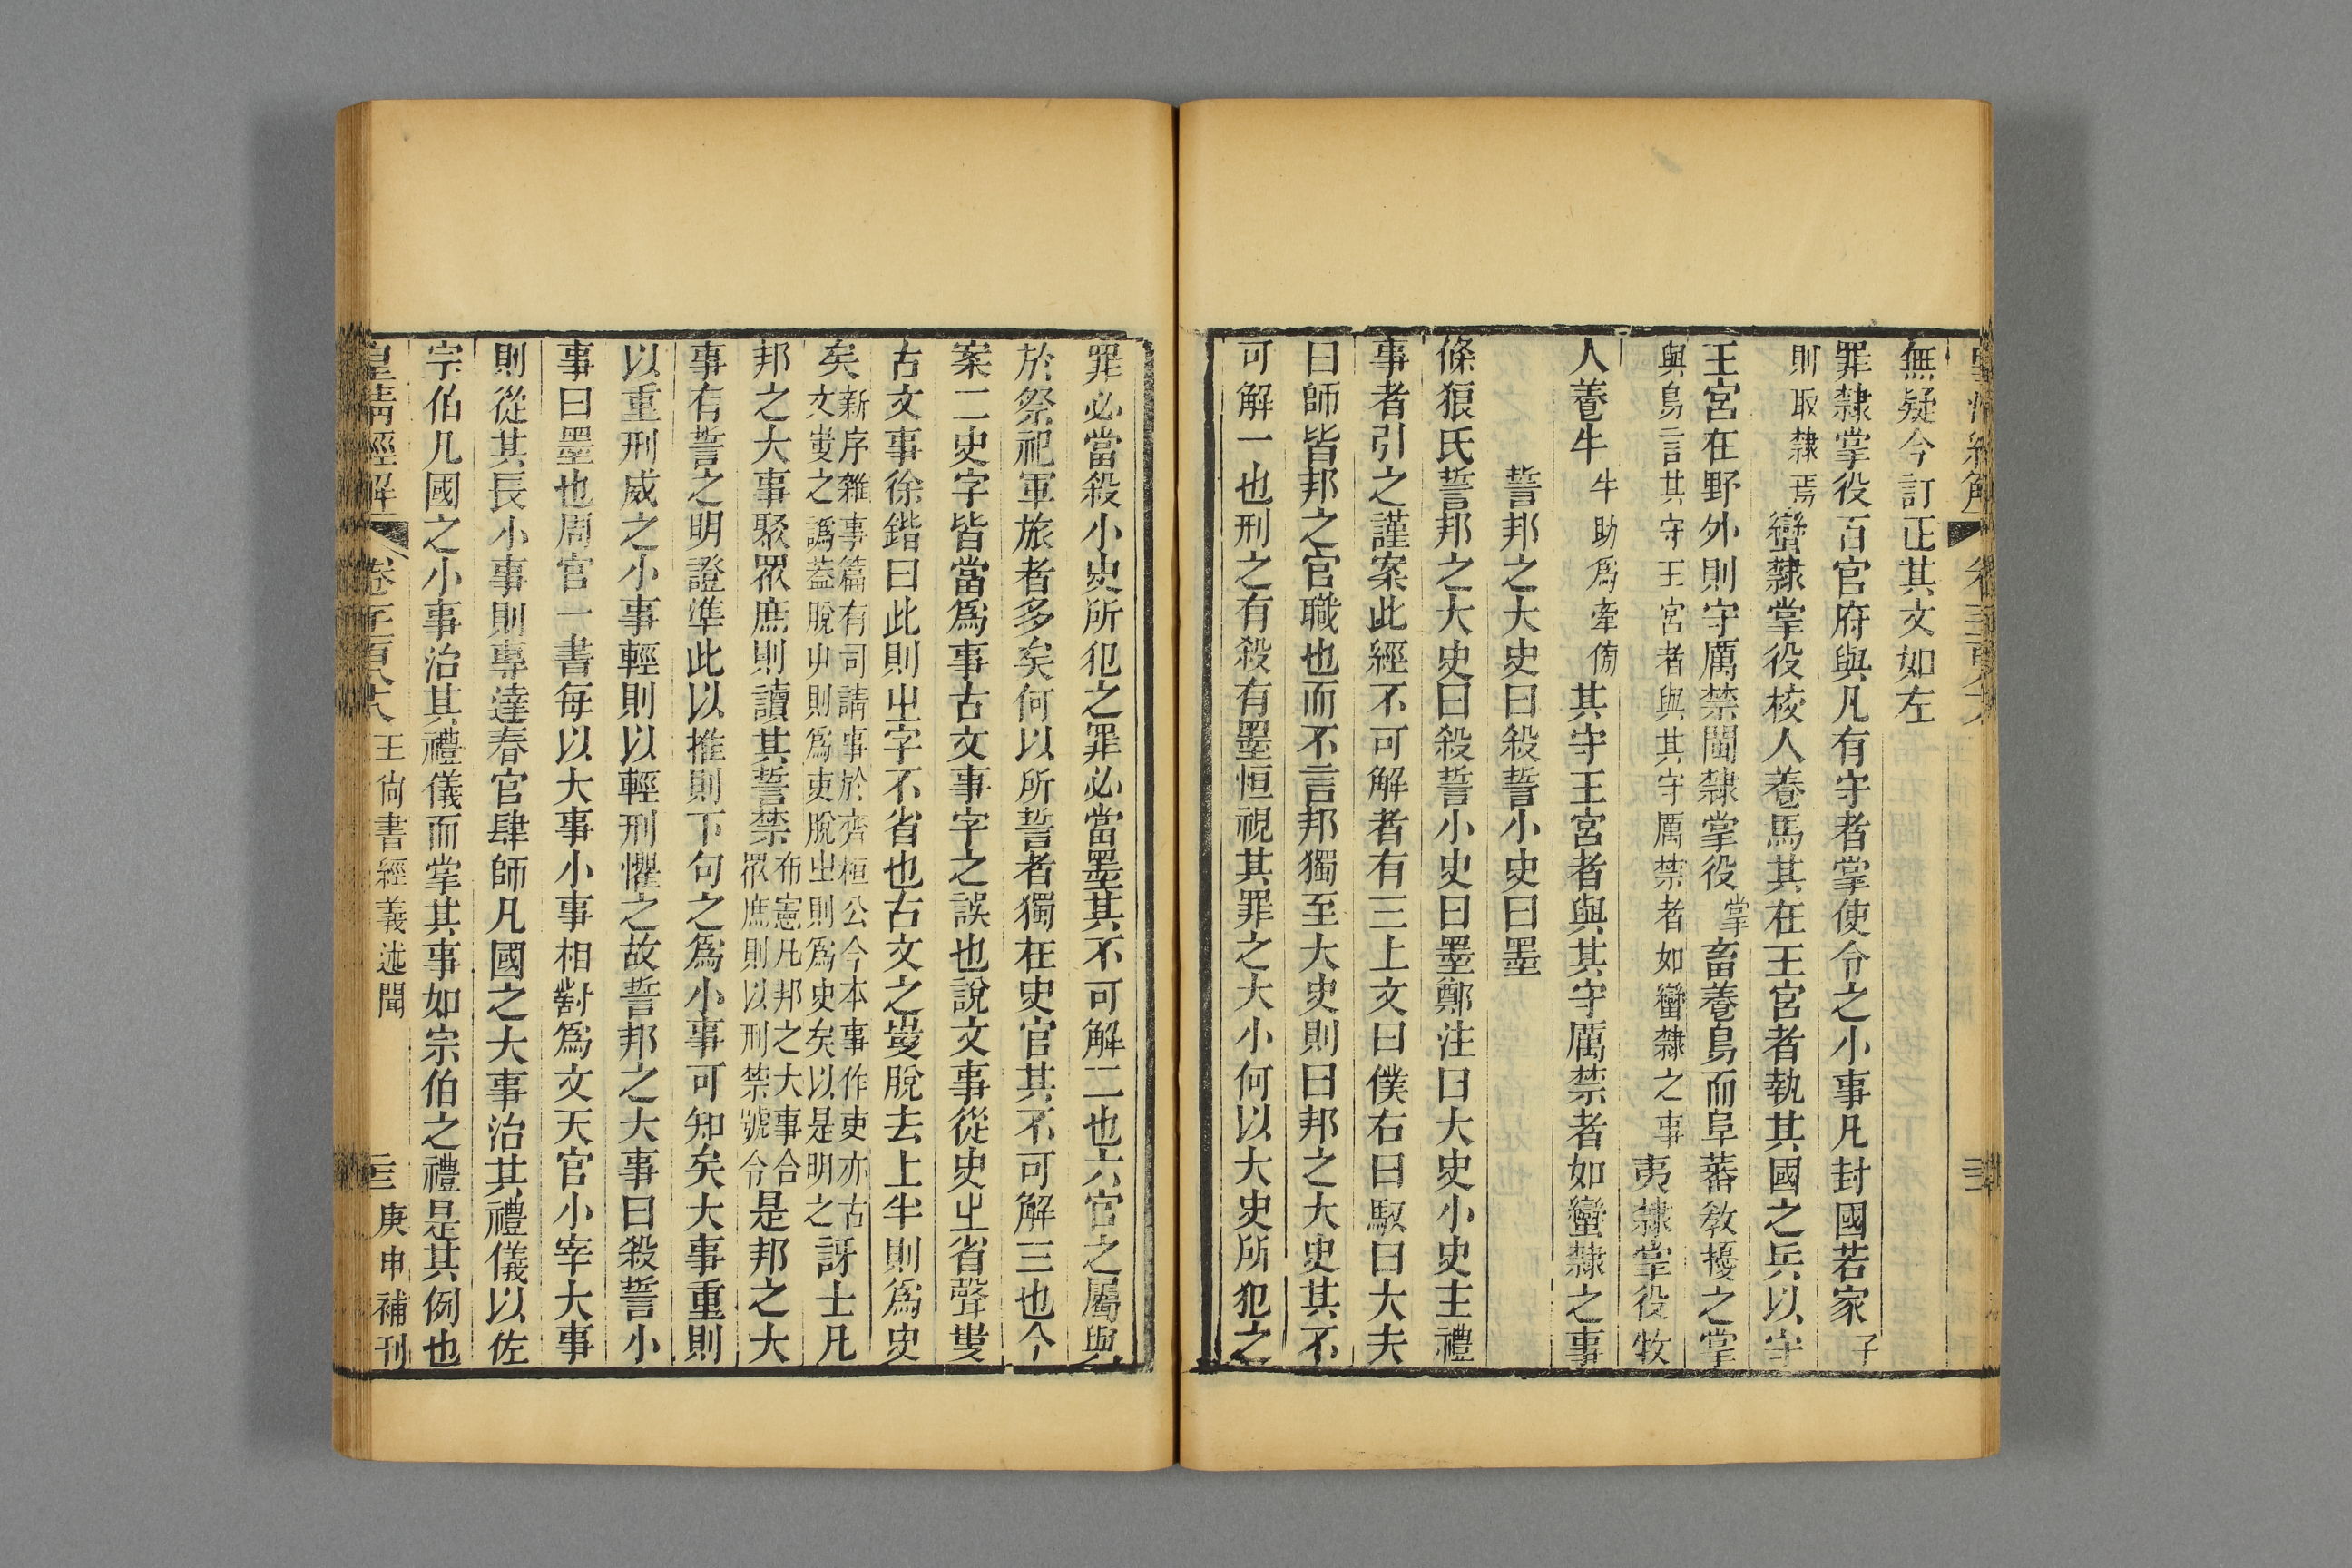 無疑今訂正其文如左
罪隸掌役百官府與凡有守者掌使令之小事凡封國若家子
則取隸焉蠻隸掌役校人養馬其在王宮者執其國之兵以守
王宮在野外則守厲禁閩隸掌役掌畜養鳥而阜蕃敎擾之掌
與鳥言其守王宮者與其守厲禁者如蠻隸之事夷隸掌役牧
人養牛牛助爲牽傍其守王宮者與其守厲禁者如蠻隸之事
誓邦之大史曰殺誓小史曰墨
條狼氏誓邦之大史曰殺誓小史曰墨鄭注曰大史小史主禮
事者引之謹案此經不可解者有三上文曰僕右曰馭曰大夫
曰師皆邦之官職也而不言邦獨至大史則曰邦之大史其不
可解一也刑之有殺有墨恒視其罪之大小何以大史所犯之
罪必當殺小史所犯之罪必當墨其不可解二也六官之屬與
於祭祀軍旅者多矣何以所誓者獨在史官其不可解三也今
案二史字皆當爲事古文事字之誤也說文事從史㞢省聲叓
古文事徐鍇曰此則㞢字不省也古文之叓脫去上半則爲史
矣
新序雜事篇有司請事於齊桓公今本事作吏亦古
文叓之譌葢脫屮則爲吏脫㞢則爲史矣以是明之
訝士凡
邦之大事聚眾庶則讀其誓禁
布憲凡邦之大事合
眾庶則以刑禁號令
是邦之大
事有誓之明證準此以推則下句之爲小事可知矣大事重則
以重刑威之小事輕則以輕刑懼之故誓邦之大事曰殺誓小
事曰墨也周官一書每以大事小事相對爲文天官小宰大事
則從其長小事則專達春官肆師凡國之大事治其禮儀以佐
宗伯凡國之小事治其禮儀而掌其事如宗伯之禮是其例也
皇清經解 王尙書經義述聞 庚申補刊